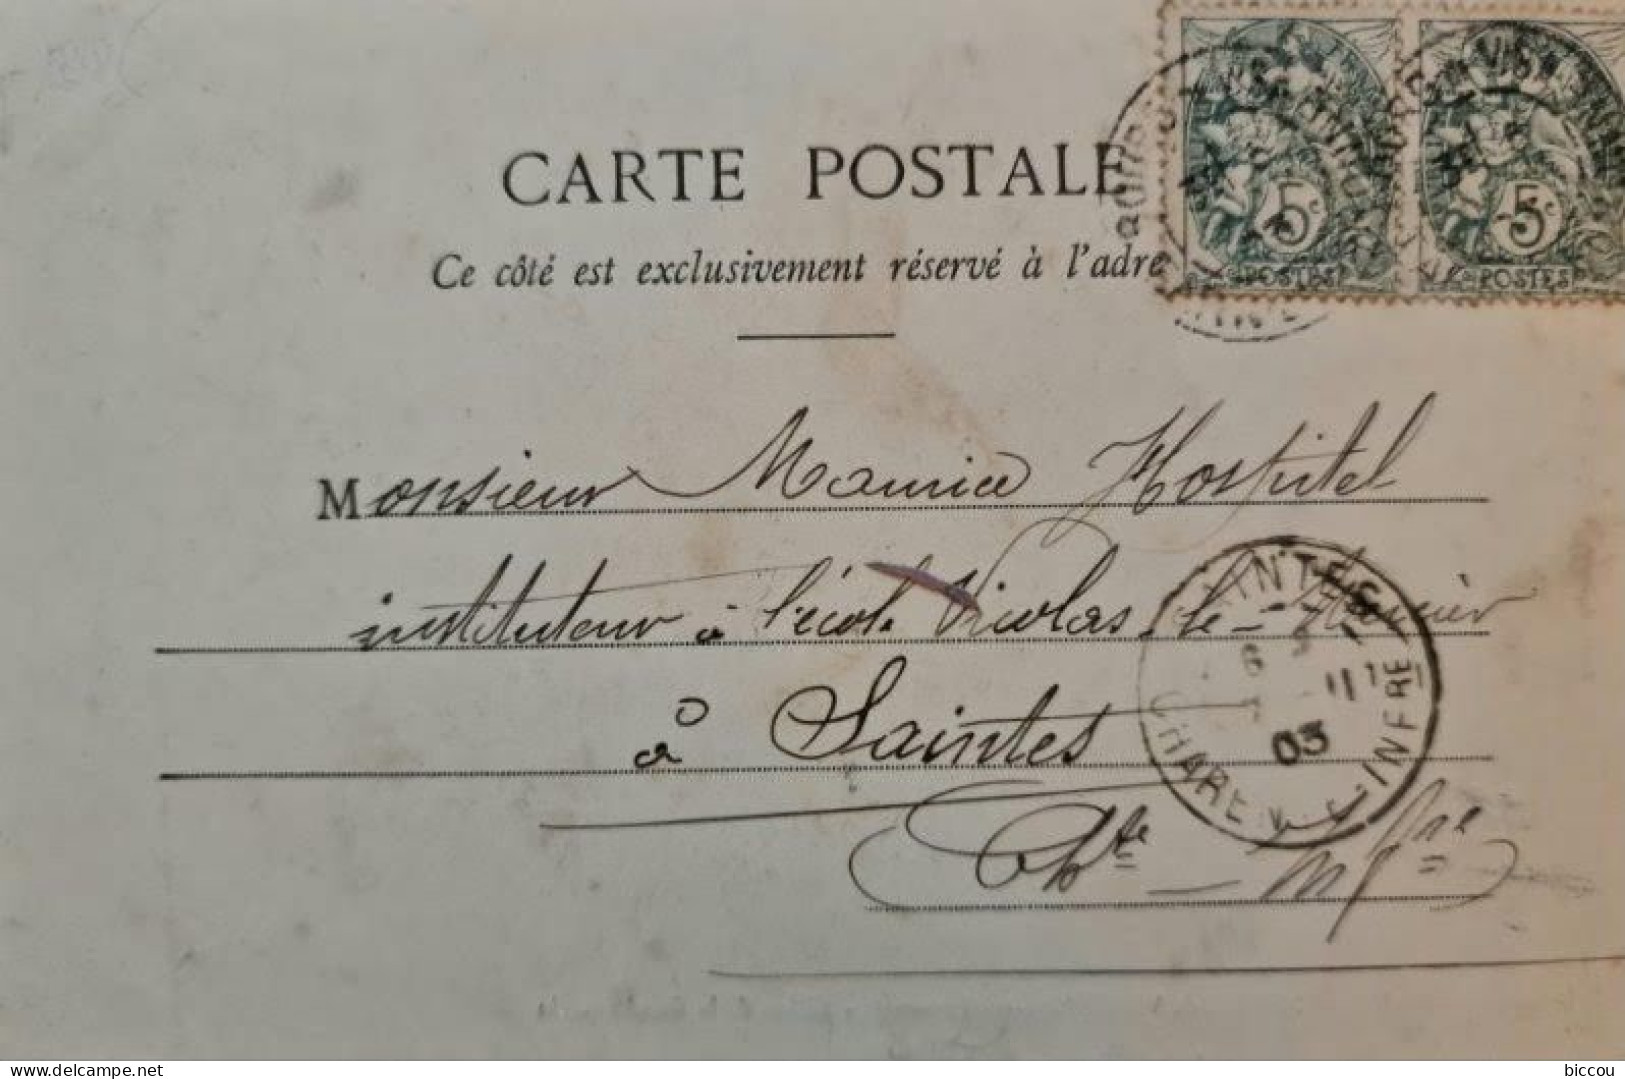 CARTE POSTALE
Ce côté est exclusivement réservé à l'adre
5c 5c
POSTES POSTES
Monsieur Maurice Hospitel
instituteur à l'école Nicolas-le-
à Saintes
Chte - Infre
SAINTES
03
CHARENTE-INFRE
biccou